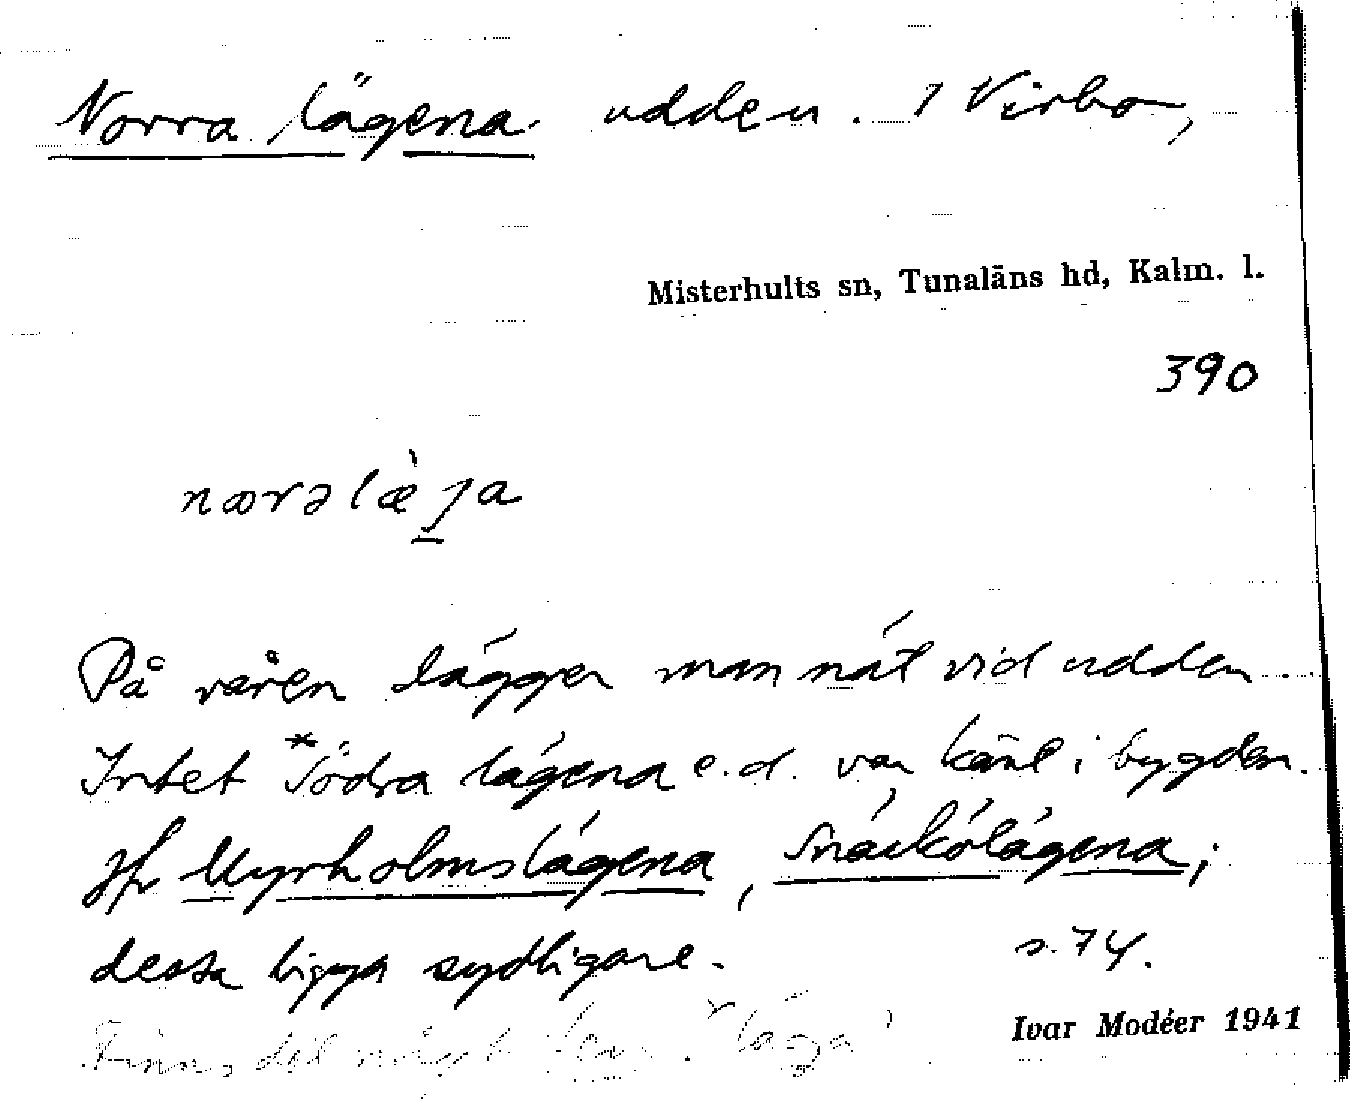 Norra lägena udden. I Virbo,
Misterhults sn, Tunaläns hd, Kalm. l.
390
nærəlæ̀ja
På våren lägger man nät vid udden.
Intet *Södra lägena e.d. var känt i bygden.
Jfr Myrholmslägena, Snäckölägena;
dessa ligga sydligare. s. 74.
Ivar Modéer 1941
Finns det